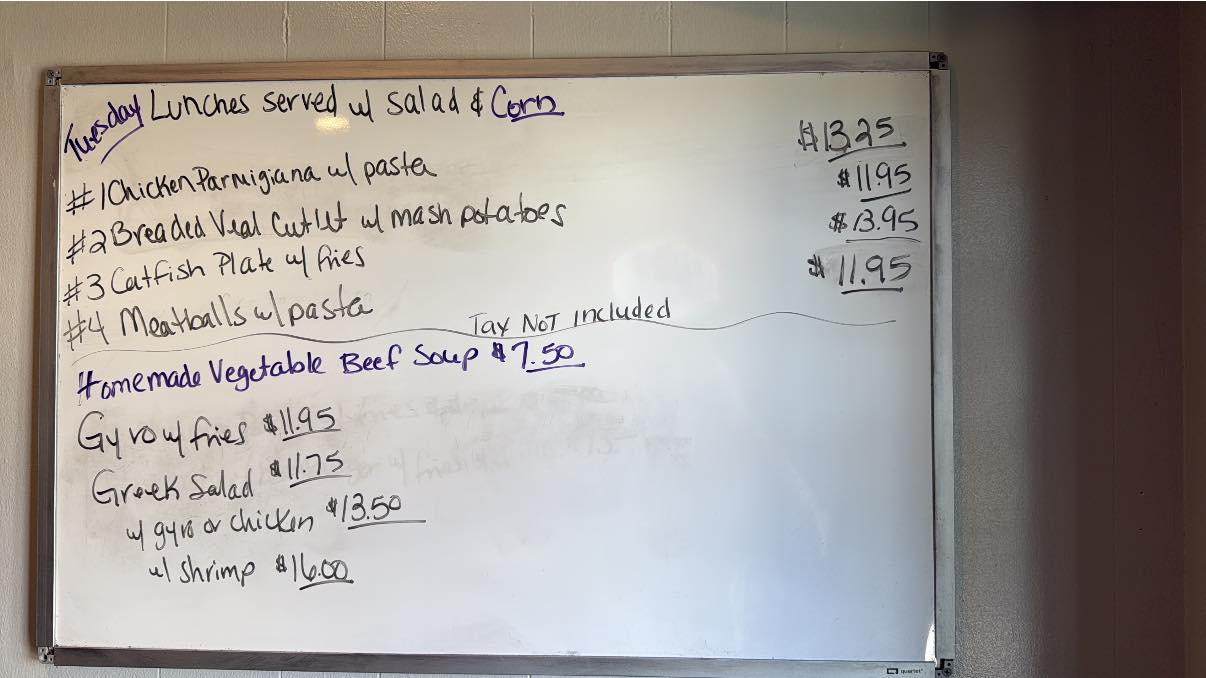 Tuesday Lunches served w/ salad & Corn
#1 Chicken Parmigiana w/ pasta $13.25
#2 Breaded Veal Cutlet w/ mash potatoes $11.95
#3 Catfish Plate w/ fries $13.95
#4 Meatballs w/ pasta $11.95
Tax Not included
Homemade Vegetable Beef Soup $7.50
Gyro w/ fries $11.95
Greek Salad $11.75
w/ gyro or chicken $13.50
w/ shrimp $16.00
quartet